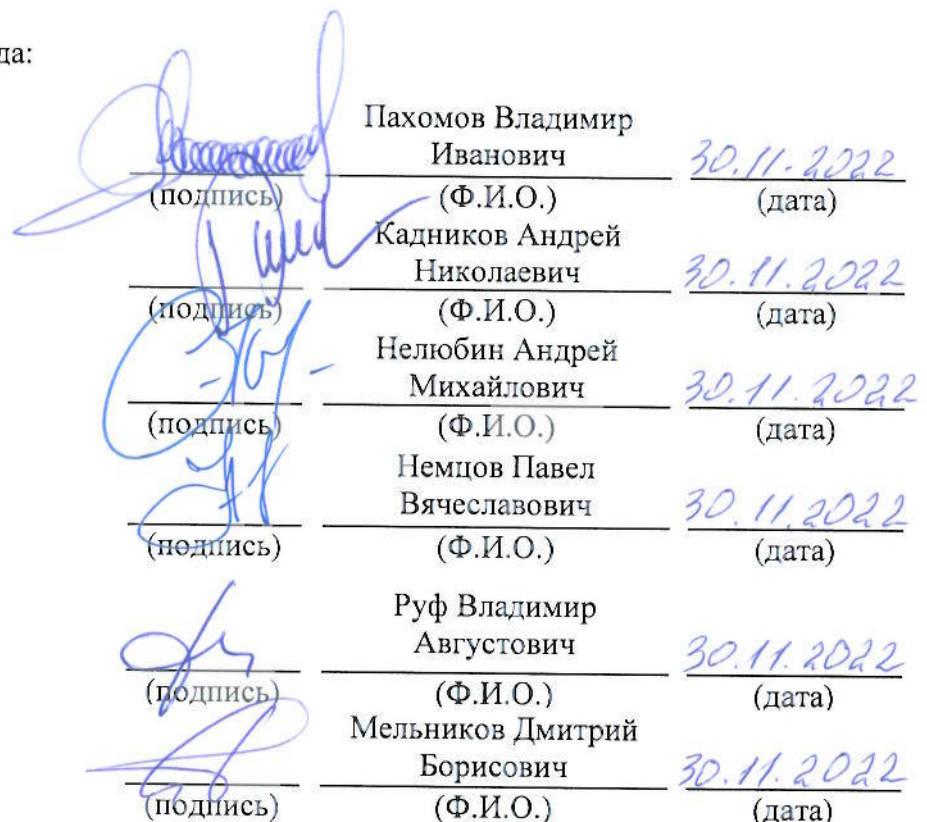 да:
Пахомов Владимир
Иванович 30.11.2022
(подпись) (Ф.И.О.) (дата)
Кадников Андрей
Николаевич 30.11.2022
(подпись) (Ф.И.О.) (дата)
Нелюбин Андрей
Михайлович 30.11.2022
(подпись) (Ф.И.О.) (дата)
Немцов Павел
Вячеславович 30.11.2022
(подпись) (Ф.И.О.) (дата)
Руф Владимир
Августович 30.11.2022
(подпись) (Ф.И.О.) (дата)
Мельников Дмитрий
Борисович 30.11.2022
(подпись) (Ф.И.О.) (дата)